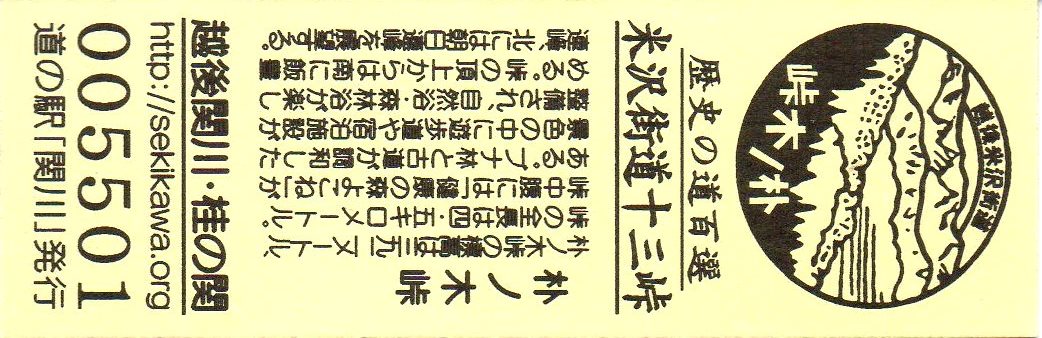 朴ノ木峠
越後米沢街道
歴史の道百選
米沢街道十三峠
朴ノ木峠
朴ノ木峠の標高は メートル、
峠の全長は四・五キロメートル。
峠中腹には「健康の森よこね」が
ある。ブナ林と古道が調和した
景色の中に遊歩道や宿泊施設が
整備され、自然浴・森林浴が楽し
める。峠の頂上からは南に飯豊
連峰、北には朝日連峰を展望する。
越後関川・桂の関
http://sekikawa.org
005501
道の駅「関川」発行